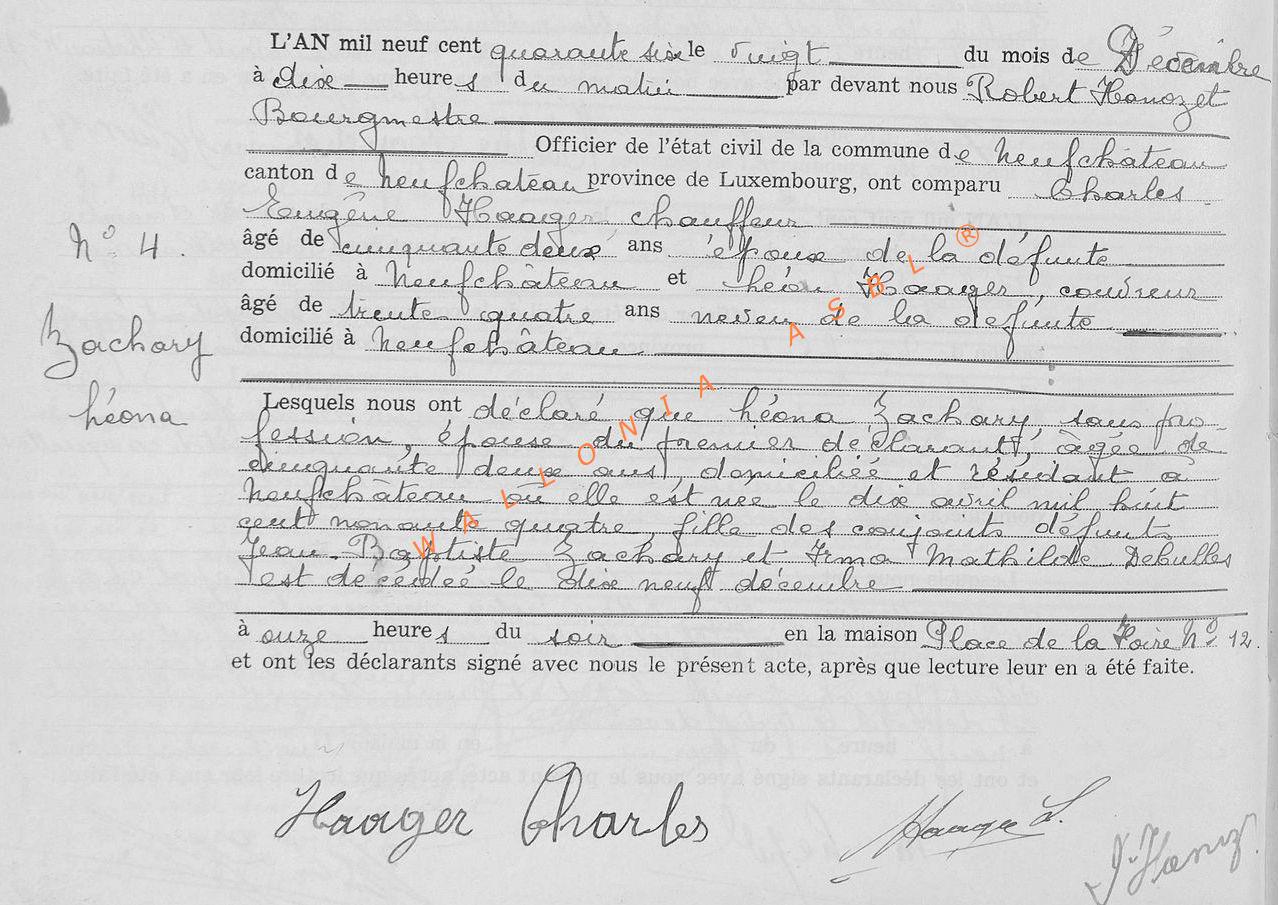 L'AN mil neuf cent quarante six le vingt du mois de Décembre
à dix heures du matin par devant nous Robert Hanozet
Bourgmestre
Officier de l'état civil de la commune de Neufchâteau
canton de Neufchateau province de Luxembourg, ont comparu Charles
Eugène Haager, chauffeur
N° 4.
âgé de cinquante deux ans époux de la défunte
domicilié à Neufchâteau et Léon Haager, couvreur
âgé de trente quatre ans neveu de la défunte
domicilié à Neufchâteau
Zachary
Léona
Lesquels nous ont déclaré que Léona Zachary, sans pro-
fession, épouse du premier déclarant, âgée de
cinquante deux ans, domiciliée et résidant à
Neufchâteau où elle est née le dix avril mil huit
cent nonante quatre, fille des conjoints défunts
Jean-Baptiste Zachary et Irma Mathilde Debulles
est décédée le dix neuf décembre
à onze heures du soir en la maison Place de la Foire N° 12.
et ont les déclarants signé avec nous le présent acte, après que lecture leur en a été faite.
WALLONIA ASBL ®
Haager Charles
Haager L.